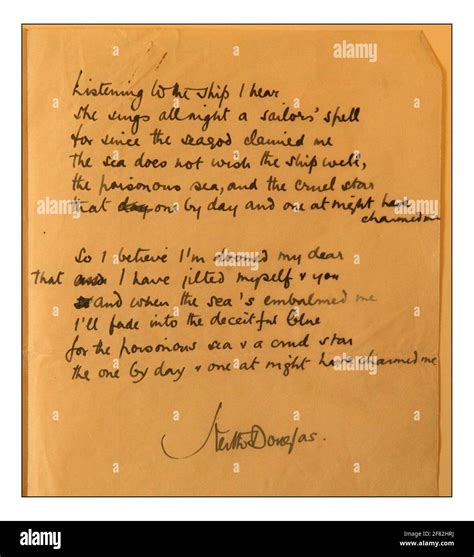 Listening to the ship I hear
She sings all night a sailors' spell
for since the seagod claimed me
the sea does not wish the ship well,
the poisonous sea, and the cruel star
that day one by day and one at night have
charmed me
So I believe I'm doomed my dear
That I have jilted myself & you
and when the sea's embalmed me
I'll fade into the deceitful blue
for the poisonous sea & a cruel star
the one by day & one at night have charmed me
Keith Douglas.
alamy
Image ID: 2F82HRJ
www.alamy.com